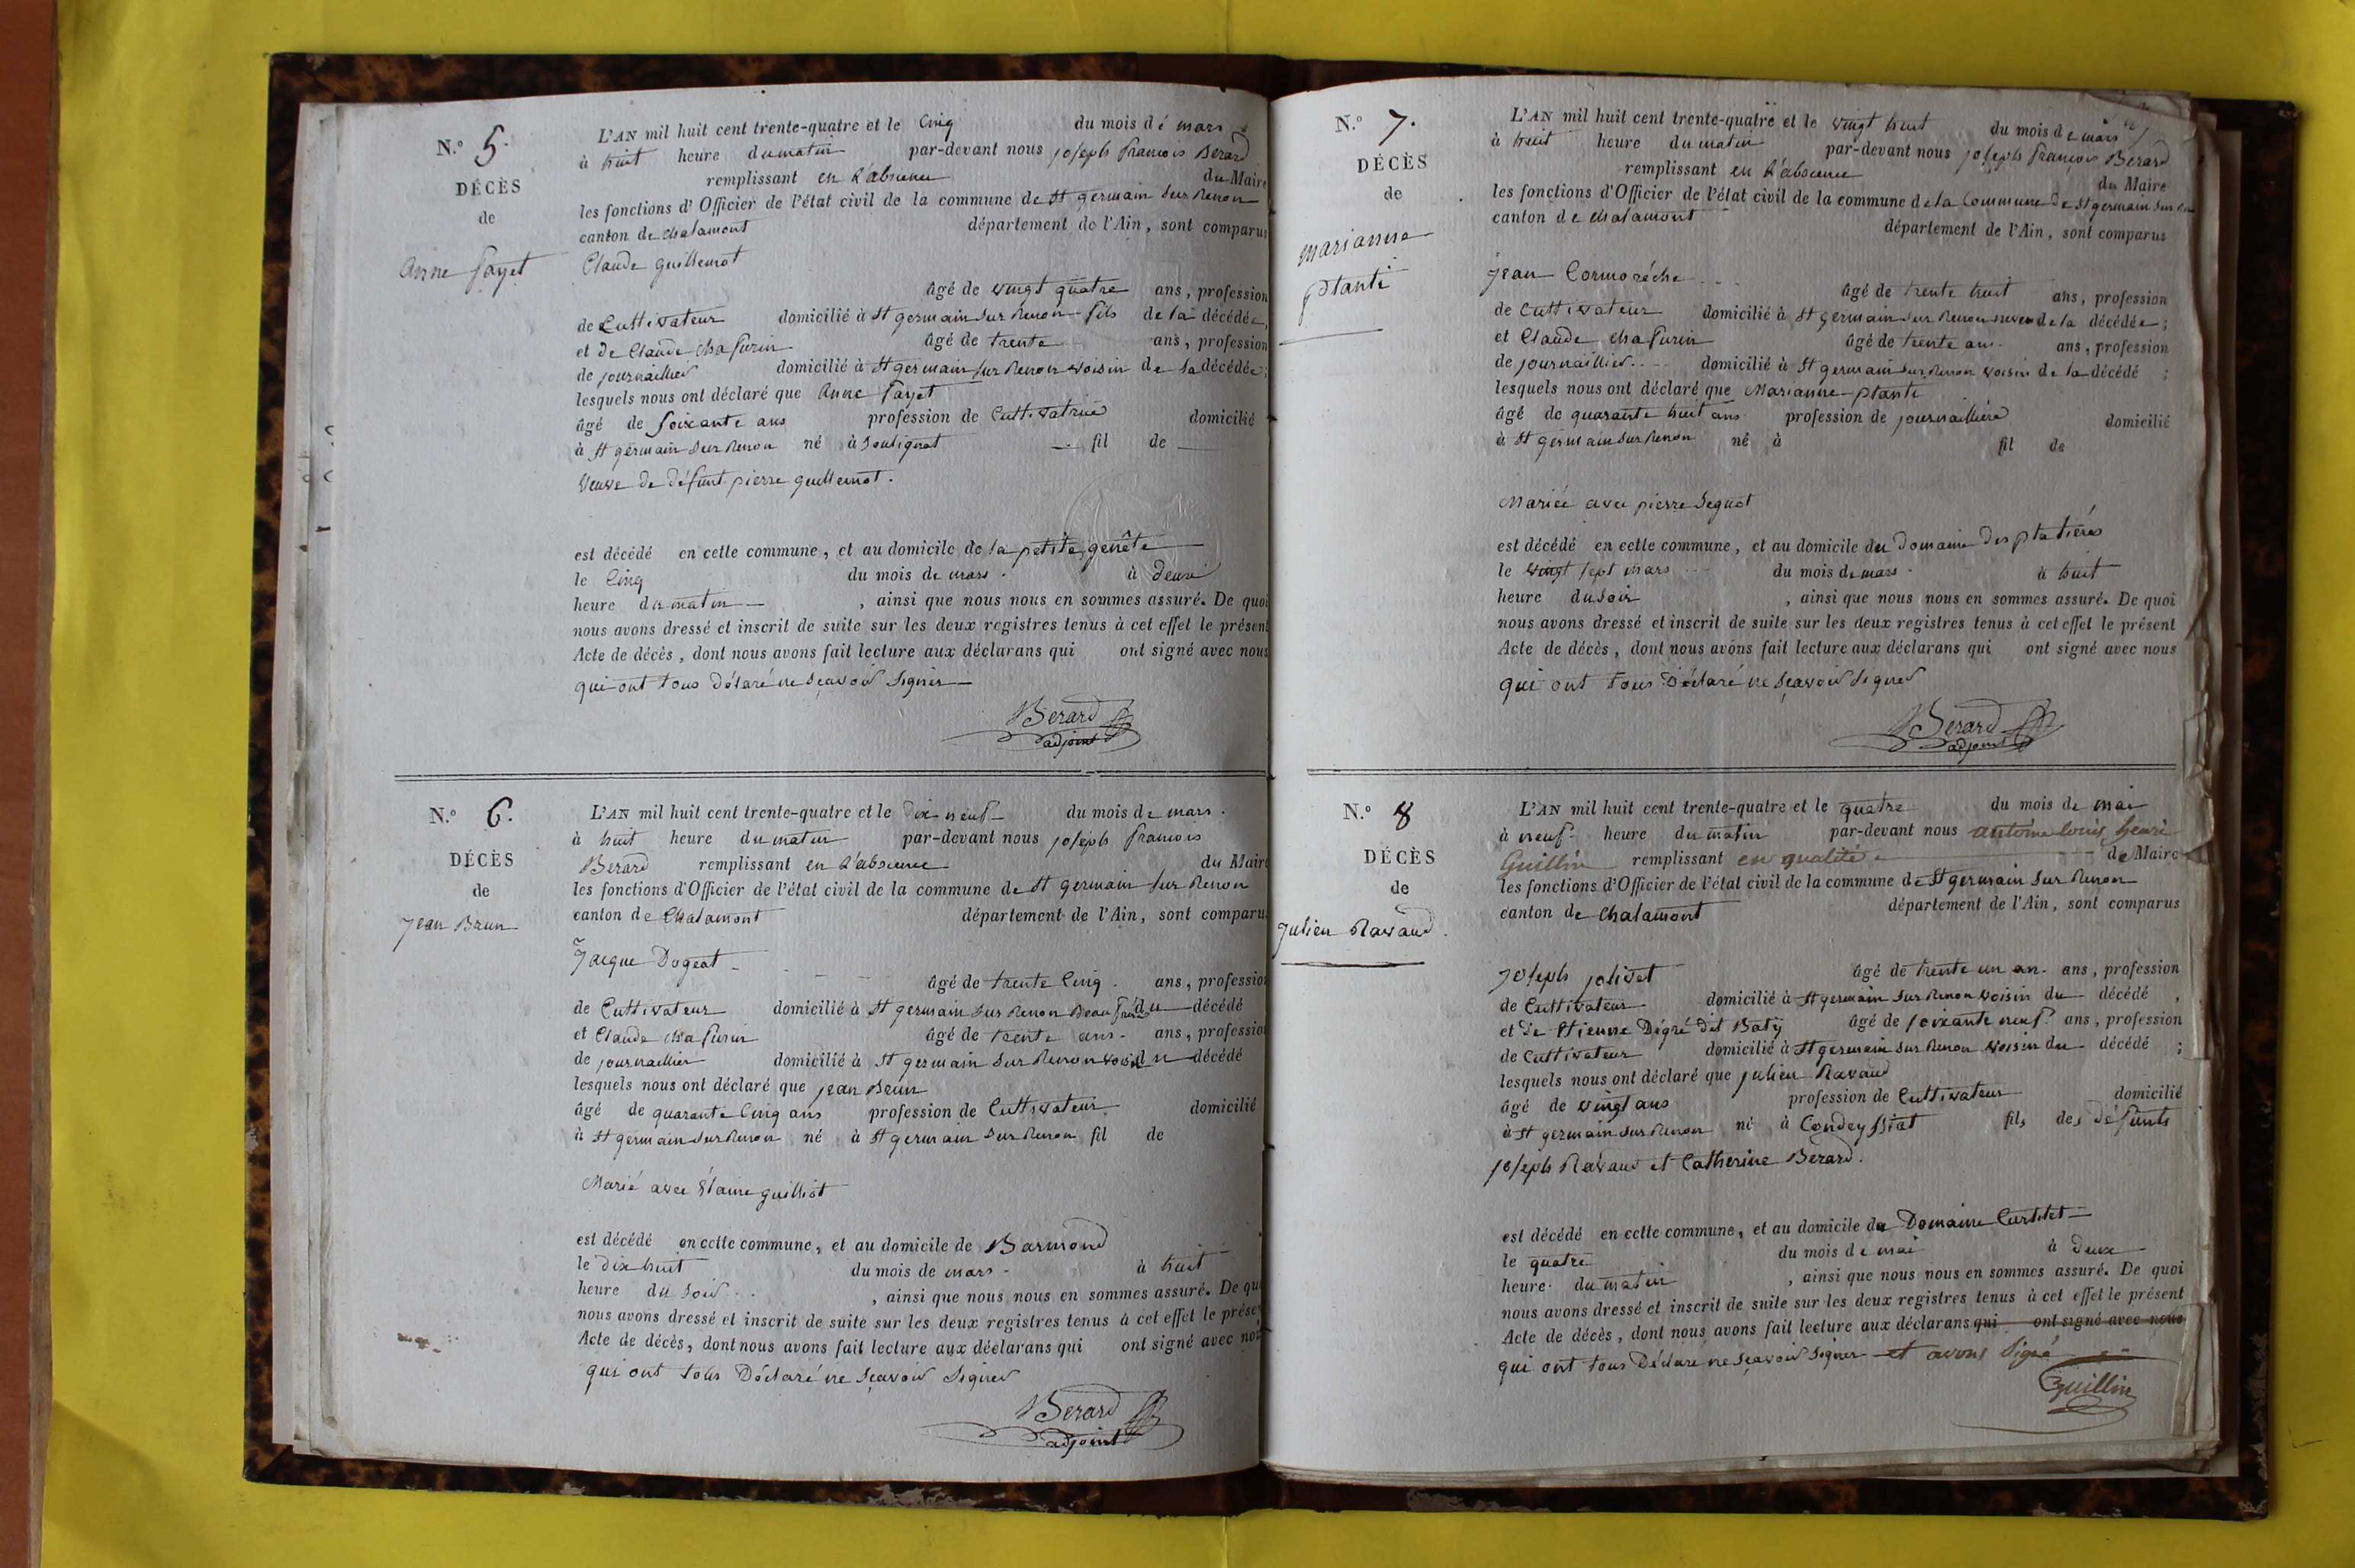 N.º 5.
DÉCÈS
de
Anne fayet
L'AN mil huit cent trente-quatre et le Cinq du mois de mars
à huit heure du matin par-devant nous joseph francois Berard
remplissant en l'absence du Maire
les fonctions d'Officier de l'état civil de la commune de St germain sur Renon
canton de chalamont département de l'Ain, sont comparus
Claude guillemot
âgé de vingt quatre ans, profession
de Cultivateur domicilié à St germain sur Renon fils de la décédée,
et de Claude chafurin âgé de trente ans, profession
de journaillier domicilié à St germain sur Renon voisin de la décédée;
lesquels nous ont déclaré que Anne fayet
âgé de soixante ans profession de Cultivatrice domicilié
à St germain sur Renon né à Soulignat fil de
veuve de défunt pierre guillemot.
est décédé en cette commune, et au domicile de la petite genête
le Cinq du mois de mars. à deux
heure du matin, ainsi que nous nous en sommes assuré. De quoi
nous avons dressé et inscrit de suite sur les deux registres tenus à cet effet le présent
Acte de décès, dont nous avons fait lecture aux déclarans qui ont signé avec nous
qui ont tous Délaré ne sçavoir signer
Berard
adjoint
N.º 6.
DÉCÈS
de
jean Brun
L'AN mil huit cent trente-quatre et le Dix neuf du mois de mars.
à huit heure du matin par-devant nous joseph francois
Berard remplissant en l'absence du Maire
les fonctions d'Officier de l'état civil de la commune de St germain sur Renon
canton de Chalamont département de l'Ain, sont comparu
Jacque Dogeat
âgé de trente Cinq. ans, profession
de Cultivateur domicilié à St germain sur Renon Beau frère du décédé
et Claude chafurin âgé de trente ans. ans, profession
de journaillier domicilié à St germain sur Renon voisin du décédé
lesquels nous ont déclaré que jean Brun
âgé de quarante Cinq ans profession de Cultivateur. domicilié
à St germain sur Renon né à St germain sur Renon fil de
Marié avec Claire guilliot
est décédé en cette commune, et au domicile de Barmond
le dix huit du mois de mars à huit
heure du soir, ainsi que nous nous en sommes assuré. De qu
nous avons dressé et inscrit de suite sur les deux registres tenus à cet effet le prése
Acte de décès, dont nous avons fait lecture aux déclarans qui ont signé avec nou
qui ont tous Déclaré ne sçavoir signer
Berard
adjoint
N.º 7.
DÉCÈS
de
marianne
planti
L'AN mil huit cent trente-quatre et le vingt huit du mois de mars
à huit heure du matin par-devant nous joseph françois Berard
remplissant en l'absence du Maire
les fonctions d'Officier de l'état civil de la commune de la Commune de St germain sur
canton de chalamont département de l'Ain, sont comparus
jean Cormoréche
âgé de trente huit ans, profession
de Cultivateur domicilié à St germain sur Renon neveu de la décédée;
et Claude chafurin âgé de trente ans. ans, profession
de journaillier domicilié à St germain sur Renon voisin de la décédé;
lesquels nous ont déclaré que Marianne planti
âgé de quarante huit ans profession de journaillière domicilié
à St germain sur Renon né à fil de
Mariée avec pierre Seguot
est décédé en cette commune, et au domicile du Domaine des platières
le vingt sept mars du mois de mars. à huit
heure du soir, ainsi que nous nous en sommes assuré. De quoi
nous avons dressé et inscrit de suite sur les deux registres tenus à cet effet le présent
Acte de décès, dont nous avons fait lecture aux déclarans qui ont signé avec nous
qui ont tous Déclaré ne sçavoir signer
Berard
adjoint
N.º 8
DÉCÈS
de
Julien Ravaud.
L'AN mil huit cent trente-quatre et le quatre du mois de mai
à neuf heure du matin par-devant nous antoine louis henri
Guillin remplissant en qualité de Maire
les fonctions d'Officier de l'état civil de la commune de St germain sur Renon
canton de chalamont département de l'Ain, sont comparus
joseph jolivet âgé de trente un an. ans, profession
de Cultivateur domicilié à St germain sur Renon voisin du décédé,
et de Etienne Dégré dit Baty âgé de soixante neuf ans, profession
de Cultivateur domicilié à St germain sur Renon voisin du décédé;
lesquels nous ont déclaré que julien Ravaud
âgé de vingt ans profession de Cultivateur domicilié
à St germain sur Renon né à Condeyssiat fils des défunts
joseph Ravaud et Catherine Berard.
est décédé en cette commune, et au domicile du Domaine Curtelet
le quatre du mois de mai à deux
heure du matin, ainsi que nous nous en sommes assuré. De quoi
nous avons dressé et inscrit de suite sur les deux registres tenus à cet effet le présent
Acte de décès, dont nous avons fait lecture aux déclarans qui ont signé avec nous
qui ont tous Déclaré ne sçavoir signer et avons signé
Guillin